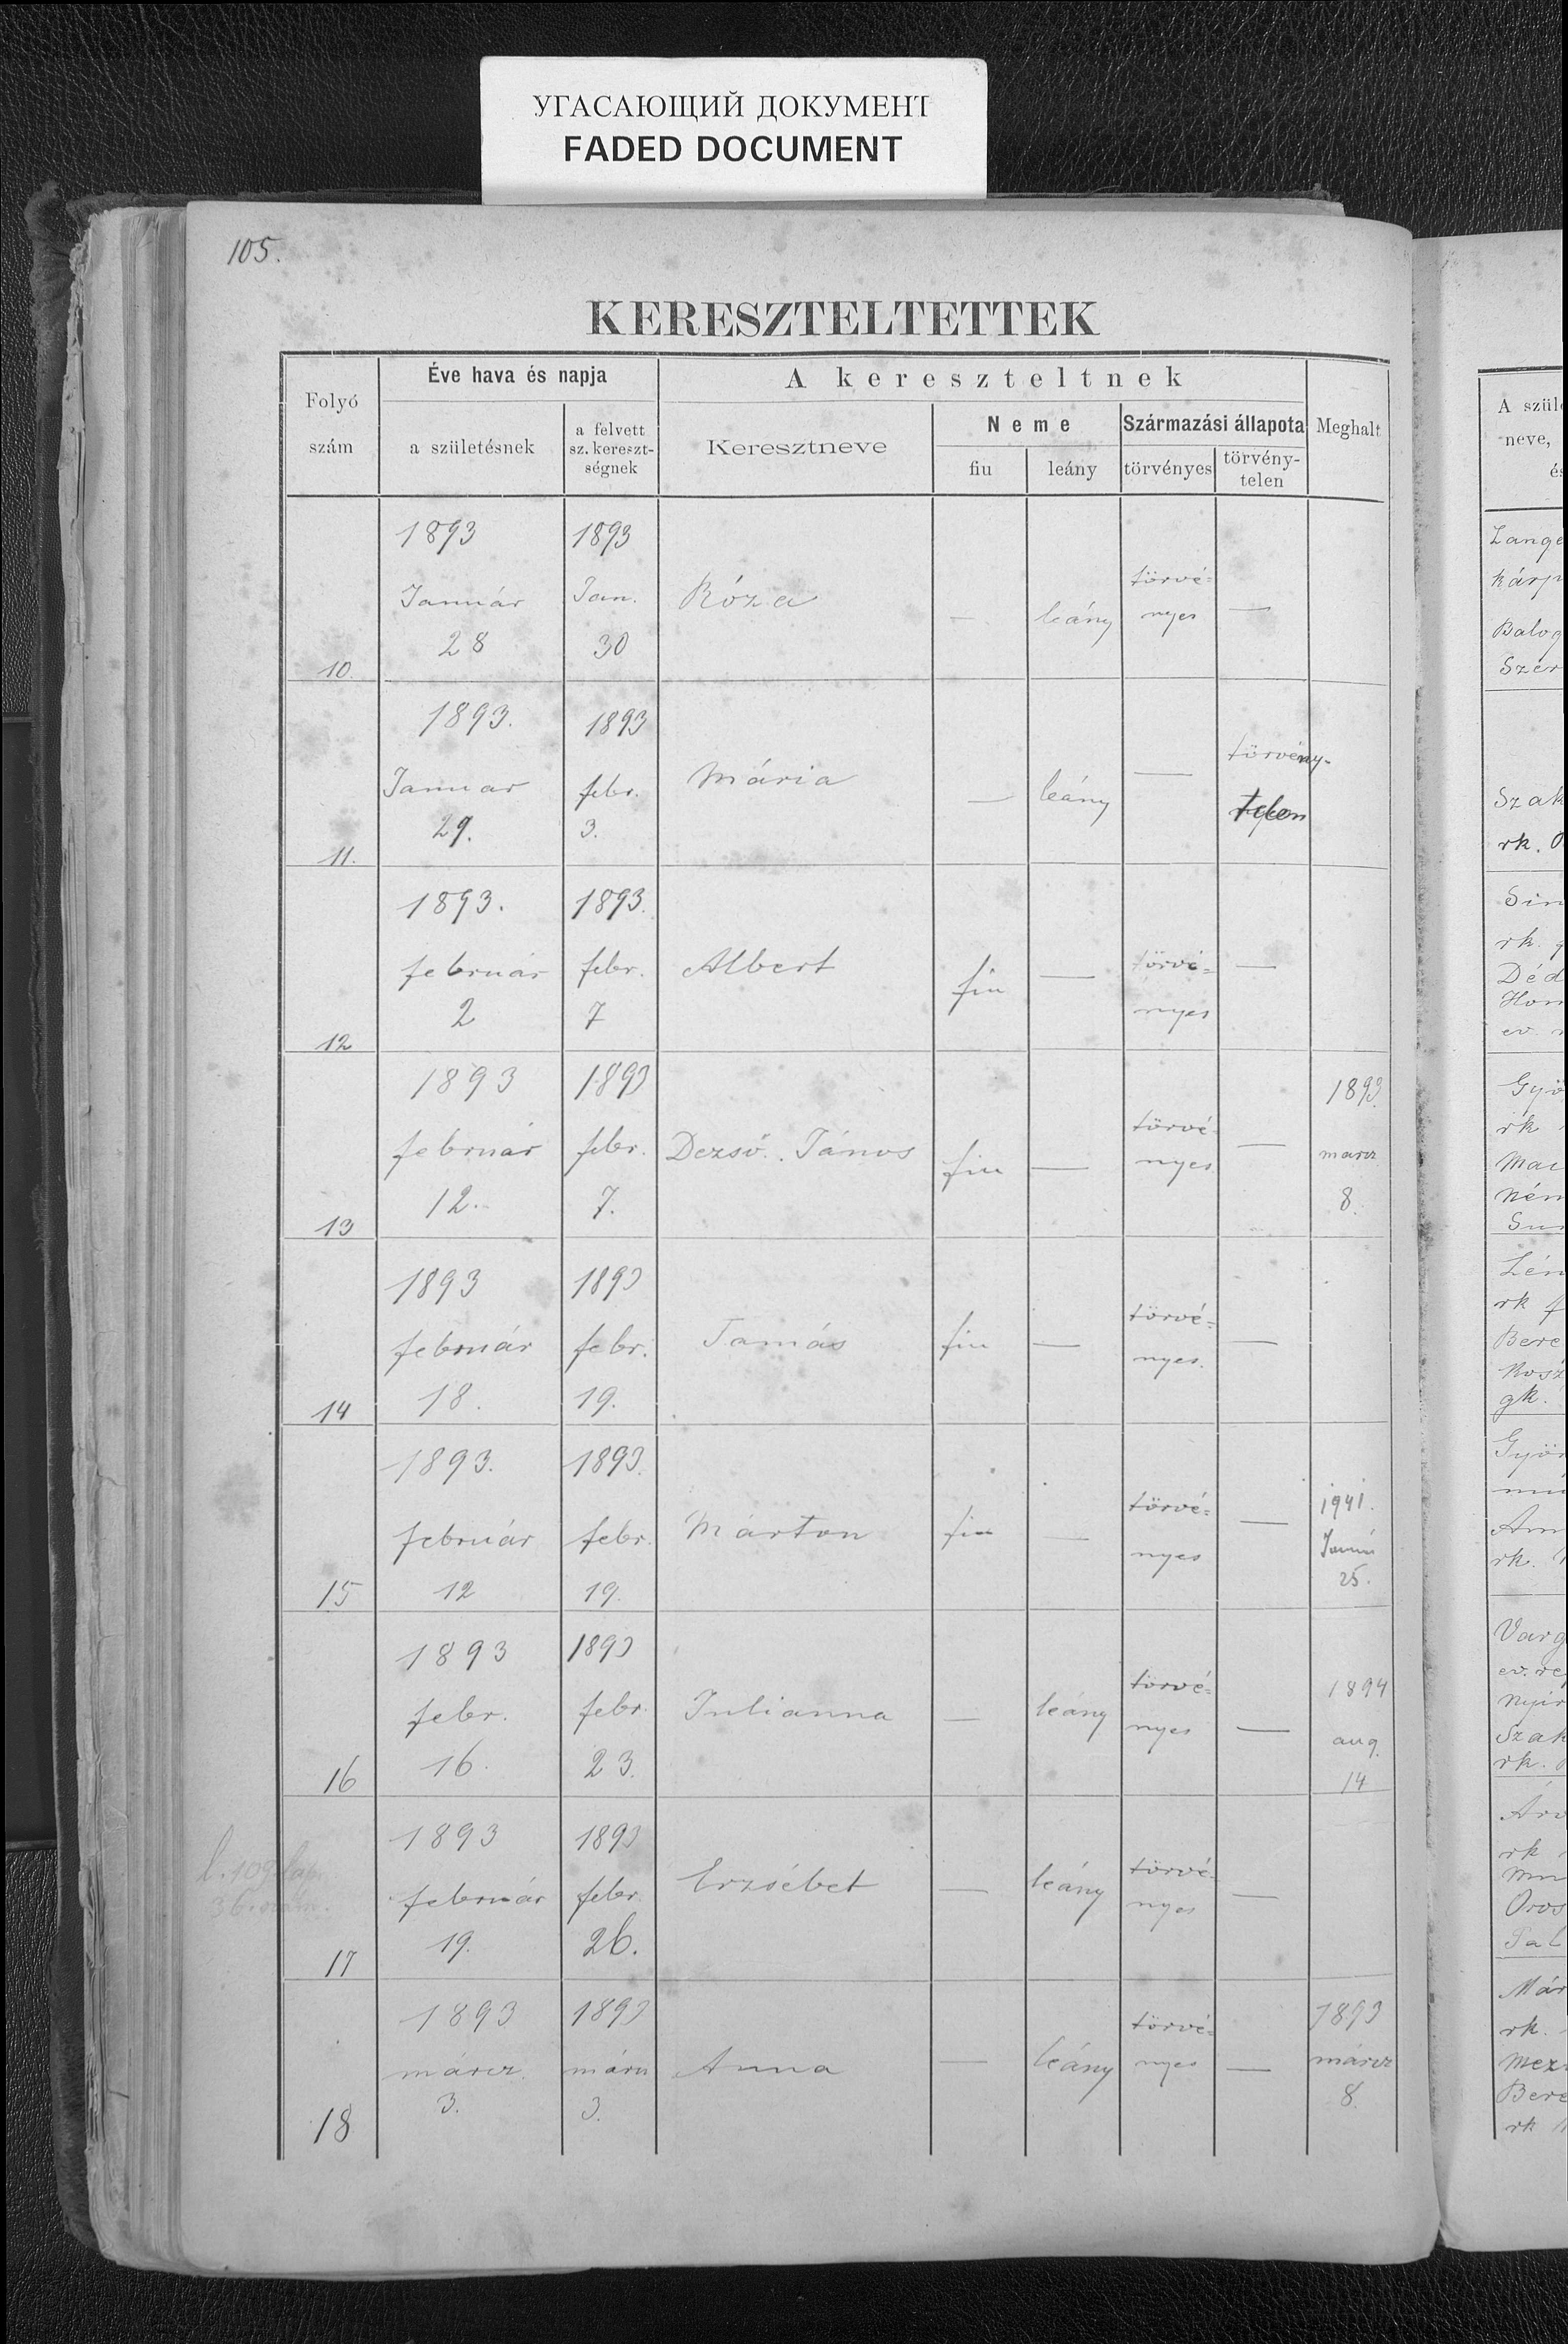 УГАСАЮЩИЙ ДОКУМЕНТ
FADED DOCUMENT
105.
KERESZTELTETTEK
Folyó szám
Éve hava és napja
a születésnek
a felvett sz. kereszt-ségnek
A kereszteltnek
Keresztneve
Neme
fiu
leány
Származási állapota
törvényes
törvény-telen
Meghalt
A szül
neve,
és
1893 1893
Január Jan. Róza — leány törvé= nyes —
28 30
10.
1893. 1893
Januar febr. Mária — leány — törvény-telen
29. 3.
11.
1893. 1893.
február febr. Albert fiu — törvé= nyes —
2 7
12
1893 1893 1893.
február febr. Dezső. János fiu — törvé- nyes — marcz
12. 7. 8.
13
1893 1893
február febr. Tamás fiu — törvé= nyes. —
18. 19.
14
1893. 1893. 1941.
február febr. Márton fiu — törvé= nyes — Januá
12 19. 25.
15
1893 1893 1894
febr. febr. Julianna — leány törvé= nyes — aug.
16. 23. 14
16
l. 109 lap.
36.
1893 1893
február febr. Erzsébet — leány törvé- nyes —
19. 26.
17
1893 1893 1893
márcz. márcz Anna — leány törvé= nyes — márcz
3. 3. 8.
18
Lange
Kárp
Balog
Szer
Szak
rk.
Sin
rk. g
Déd
Hon
ev.
Gyö
rk
Mac
Ném
Lén
rk f
Bere
Rosz
gk.
Györ
Am
rk.
Varg
ev. re
Nyir
Szak
rk.
Árv
rk
Oros
Pal
Már
rk.
Mez
Bere
rk